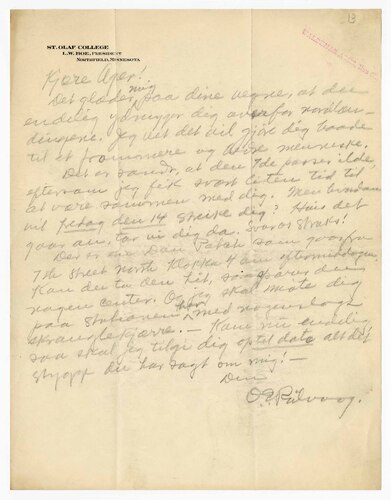 13
ST. OLAF COLLEGE
L. W. BOE, PRESIDENT
NORTHFIELD, MINNESOTA
Kjære Ager!
Det glæder mig paa dine vegner, at du
endelig ydmyger dig overfor nordlæn-
dingene. Jeg vet det vil gjøre dig baade
til et frommere og menneske.
Det er sandt, at den 7de passer ilde,
eftersom jeg fik svært liten tid til
at være sammen med dig. Men hvordan
vil fredag den 14 dig? Hvis det
gaar an, tar vi dig da. Svar os straks!
Der er en Dan Patch som gaar fra
7th Street North Klokka 4 om eftermiddagen
Kan du ta den hit, spares du
nogen center. Og jeg skal møte dig
paa Stationen her med
skranglekjærre. — Kom nu endelig
saa skal jeg tilgi dig op til dato alt det
stygge du har sagt om mig! —
Din
O. E. Rølvaag.